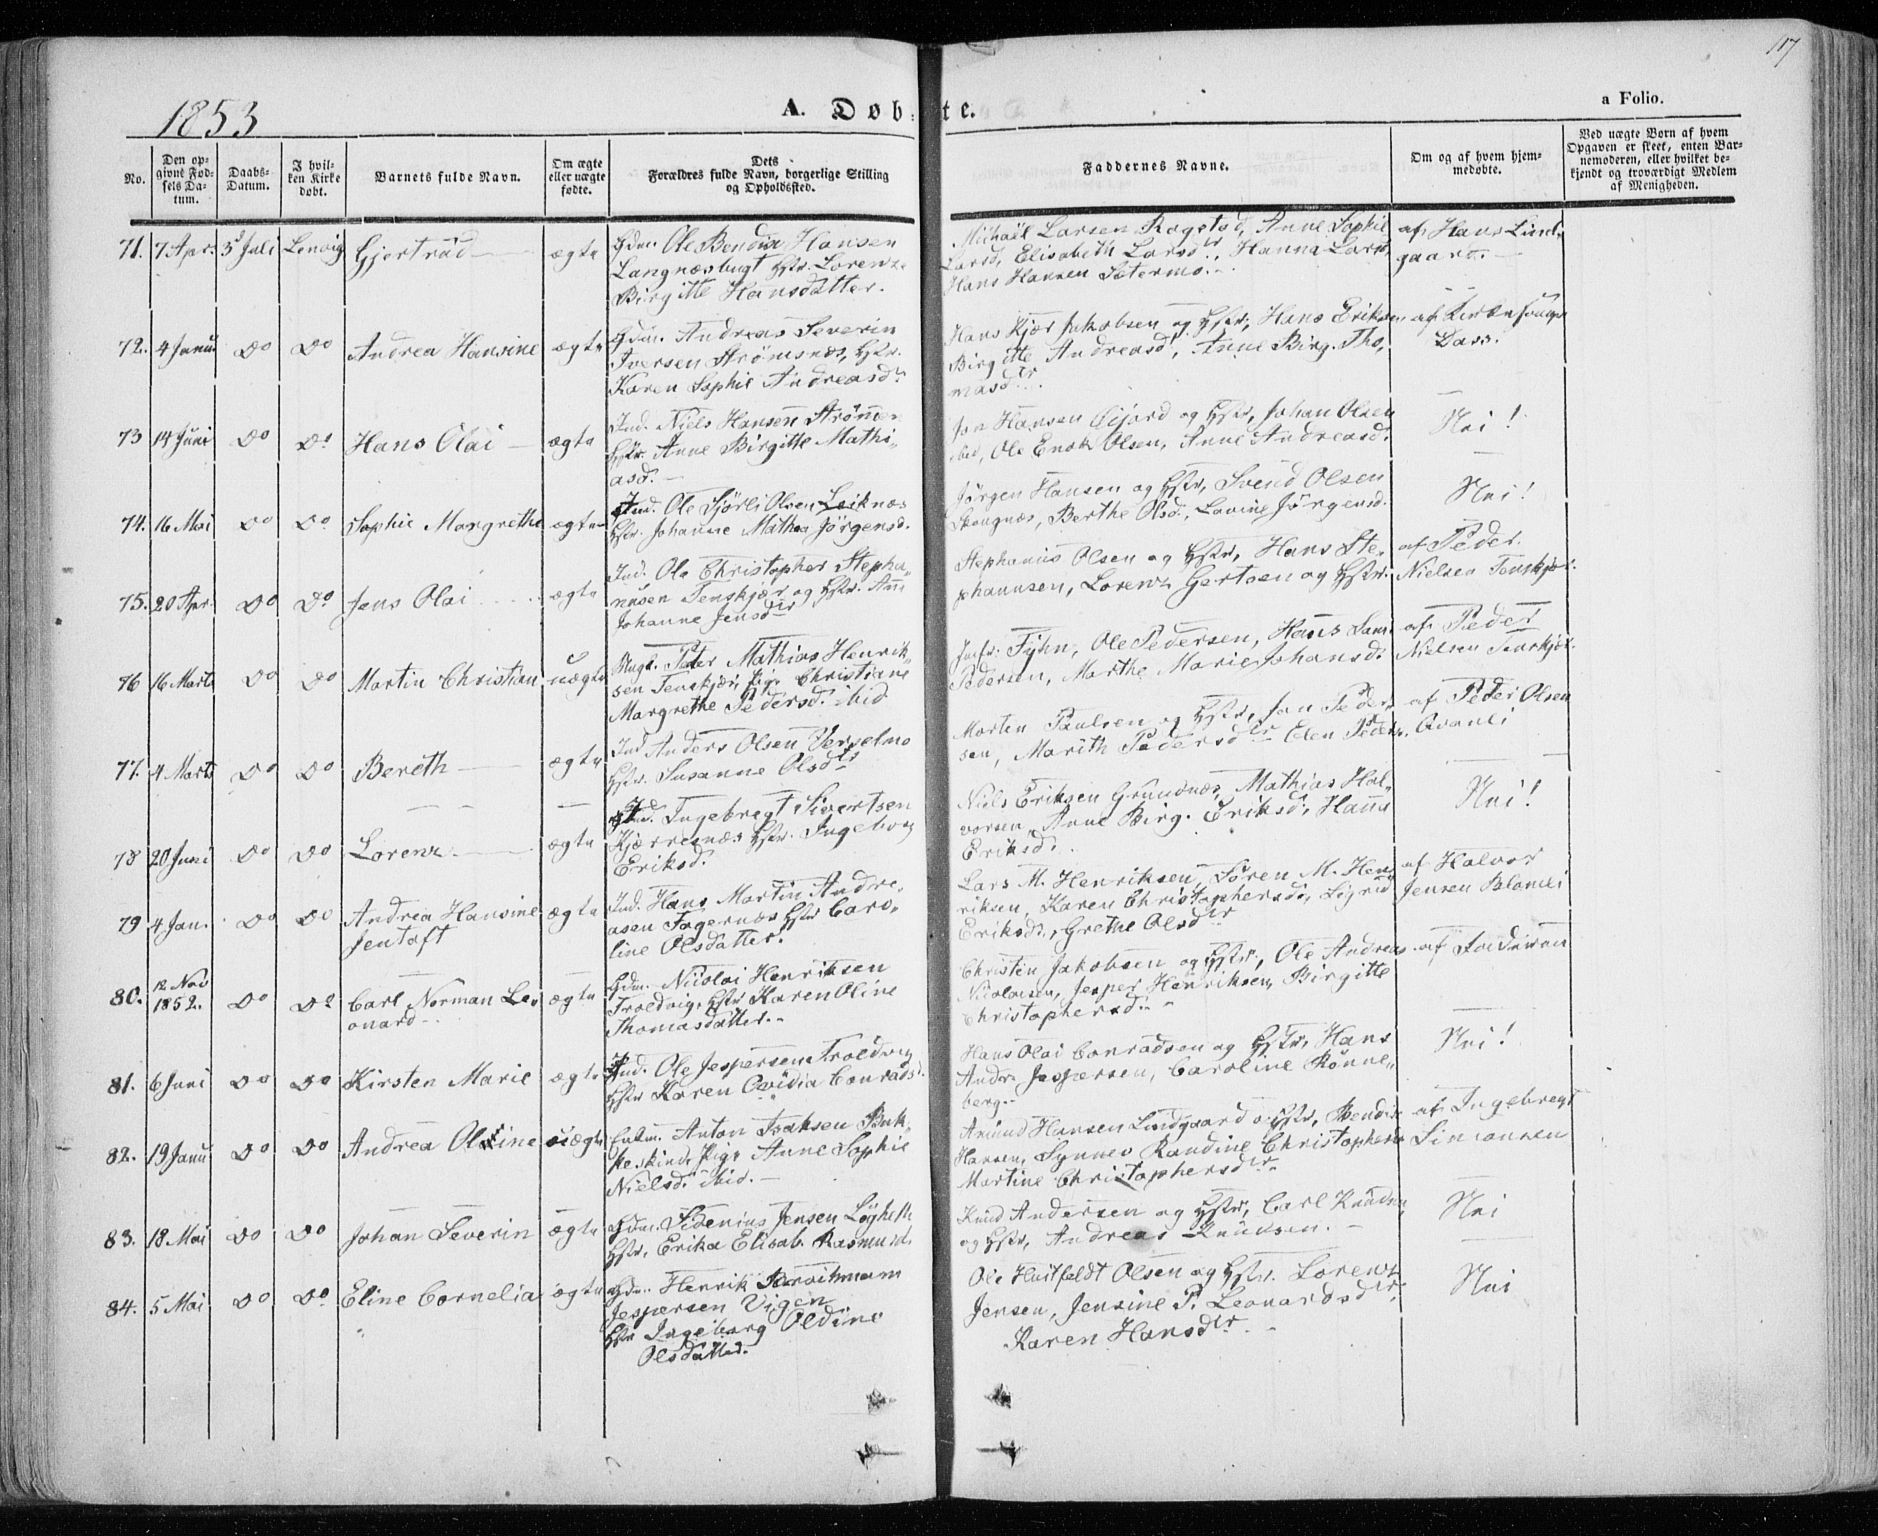 117
1853
A. Døbte.
a Folio.
No.
Den opgivne Fødsels Datum.
Daabs-Datum.
I hvilken Kirke døbt.
Barnets fulde Navn.
Om ægte eller uægte fødte.
Dets Forældres fulde Navn, borgerlige Stilling og Opholdssted.
Faddernes Navne.
Om og af hvem hjemmedøbte.
Ved uægte Børn af hvem Opgaven er skeet, enten Barnemoderen, eller hvilket bekjendt og troværdigt Medlem af Menigheden.
71. 7 Apr. 3d Juli Lenvig Gjertrud ægte
Gdm. Ole Bendix Hansen
Langnæsbugt Hstr. Lorenz
Birgitte Hansdatter.
Michaël Larsen Rogstad, Anne Sophie
Larsd, Elisabeth Larsdtr., Hanna Lars,
Hans Hansen Sætermo.
af Hans Lind,
gaard.
72. 4 Janu Do Do Andrea Hansine ægte
Gdm. Andreas Severin
Iversen Strømsnæs, Hstr.
Karen Sophie Andreasdtr
Hans Kjær Jakobsen og Hstr, Hans Eriksen
Birgitte Andreasd, Anne Birg. Tho,
masdtr.
af Kirkesanger
Dass.
73 14 Juni Do Do Hans Olai ægte
Ind. Niels Hansen Strømsn
Hstr. Anne Birgitte Mathi,
asd.
Jon Hansen Øijord og Hstr, Johan Olsen
ibid, Ole Enok Olsen, Anne Andreasd.
Nei!
74. 16 Mai Do Do Sophie Margrethe ægte
Ind. Ole Sjørli Olsen Leiknæs
Hstr. Johanne Mathea Jørgensd.
Jørgen Hansen og Hstr, Svend Olsen
Skognæs, Berthe Olsd., Lovine Jørgensd.
Nei!
75. 20 Apr. Do Do Jens Olai ægte
Ind. Ole Christopher Stepha,
nusen Tenskjær og Hstr. Ane
Johanne Jensdtr
Stephanus Olsen og Hstr, Hans Ste,
phannsen, Lorenz Gertsen og Hstr.
af Peder
Nielsen Tenskjær.
76 16 Marts Do Do Martin Christian uægte
Ungk. Peter Mathias Henrik,
sen Tenskjær, Pige Christiane
Margrethe Pedersd. ibid
Jfr. Fyhn, Ole Pedersen, Hans Lars
Pedersen, Marthe Marie Johansd.
af Peder
Nielsen Tenskjær.
77. 4 Marts Do Do Bereth ægte
Ind Anders Olsen Verselmo
Hstr. Susanne Olsdtr
Morten Paulsen og Hstr, Jon Peder,
sen, Marith Pedersdtr Elen Peders.
af Peder Olsen
Qvanli
78 20 Juni Do Do Lorenz ægte
Ind. Ingebregt Sivertsen
Kjærresnæs Hstr. Ingeborg
Eriksd.
Niels Eriksen Grundnæs, Mathias Hal,
vorsen, Anne Birg. Eriksd, Hanna
Eriksd.
Nei!
79 4 Jan. Do Do Andrea Hansine
Jentoft ægte
Ind. Hans Martin Andre,
asen Fagernæs Hstr Caro,
line Olsdatter.
Lars M. Henriksen, Søren M. Hen,
riksen, Karen Christophersd., Sigrid
Eriksd., Grethe Olsdtr
af Halvor
Jensen
80. 12 Nov
1852. Do Do Carl Norman Le,
onard ægte
Gdm. Nicolai Henriksen
Troldvig, Hstr Karen Oline
Thomasdatter.
Christen Jakobsen og Hstr, Ole Andreas
Nicolaisen, Jesper Henriksen, Birgitte
Christophersd.
af Jordmoren
81. 6 Juni Do Do Kirsten Marie ægte
Ind. Ole Jespersen Troldvig
Hstr Karen Ovidia Conrads.
Hans Olai Conradsen og Hstr, Hans
Andr. Jespersen, Caroline Rønne,
berg.
Nei!
82. 19 Janu Do Do Andrea Oline uægte
Enkm. Anton Isaksen Buk,
keskind, Pige Anne Sophie
Nielsd. ibid.
Amund Hansen Lindgaard og Hstr, Bendix
Hansen, Synnev Randine Christophersd
Martine Christophersdtr
af Ingebregt
Simonsen
83. 18 Mai Do Do Johan Severin ægte
Gdm. Sidenius Jensen Løghelle
Hstr, Erika Elisab. Rasmusd.
Knud Andersen og Hstr, Carl Knudsen
og Hstr, Andreas Knudsen.
Nei
84. 5 Mai Do Do Eline Cornelia ægte
Gdm. Henrik
Jespersen Vigen
Hstr Ingeborg Oldine
Olsdatter.
Ole Huitfeldt Olsen og Hstr. Lorenz
Jensen, Jensine P. Leonardsdtr,
Karen Hansdtr.
Nei